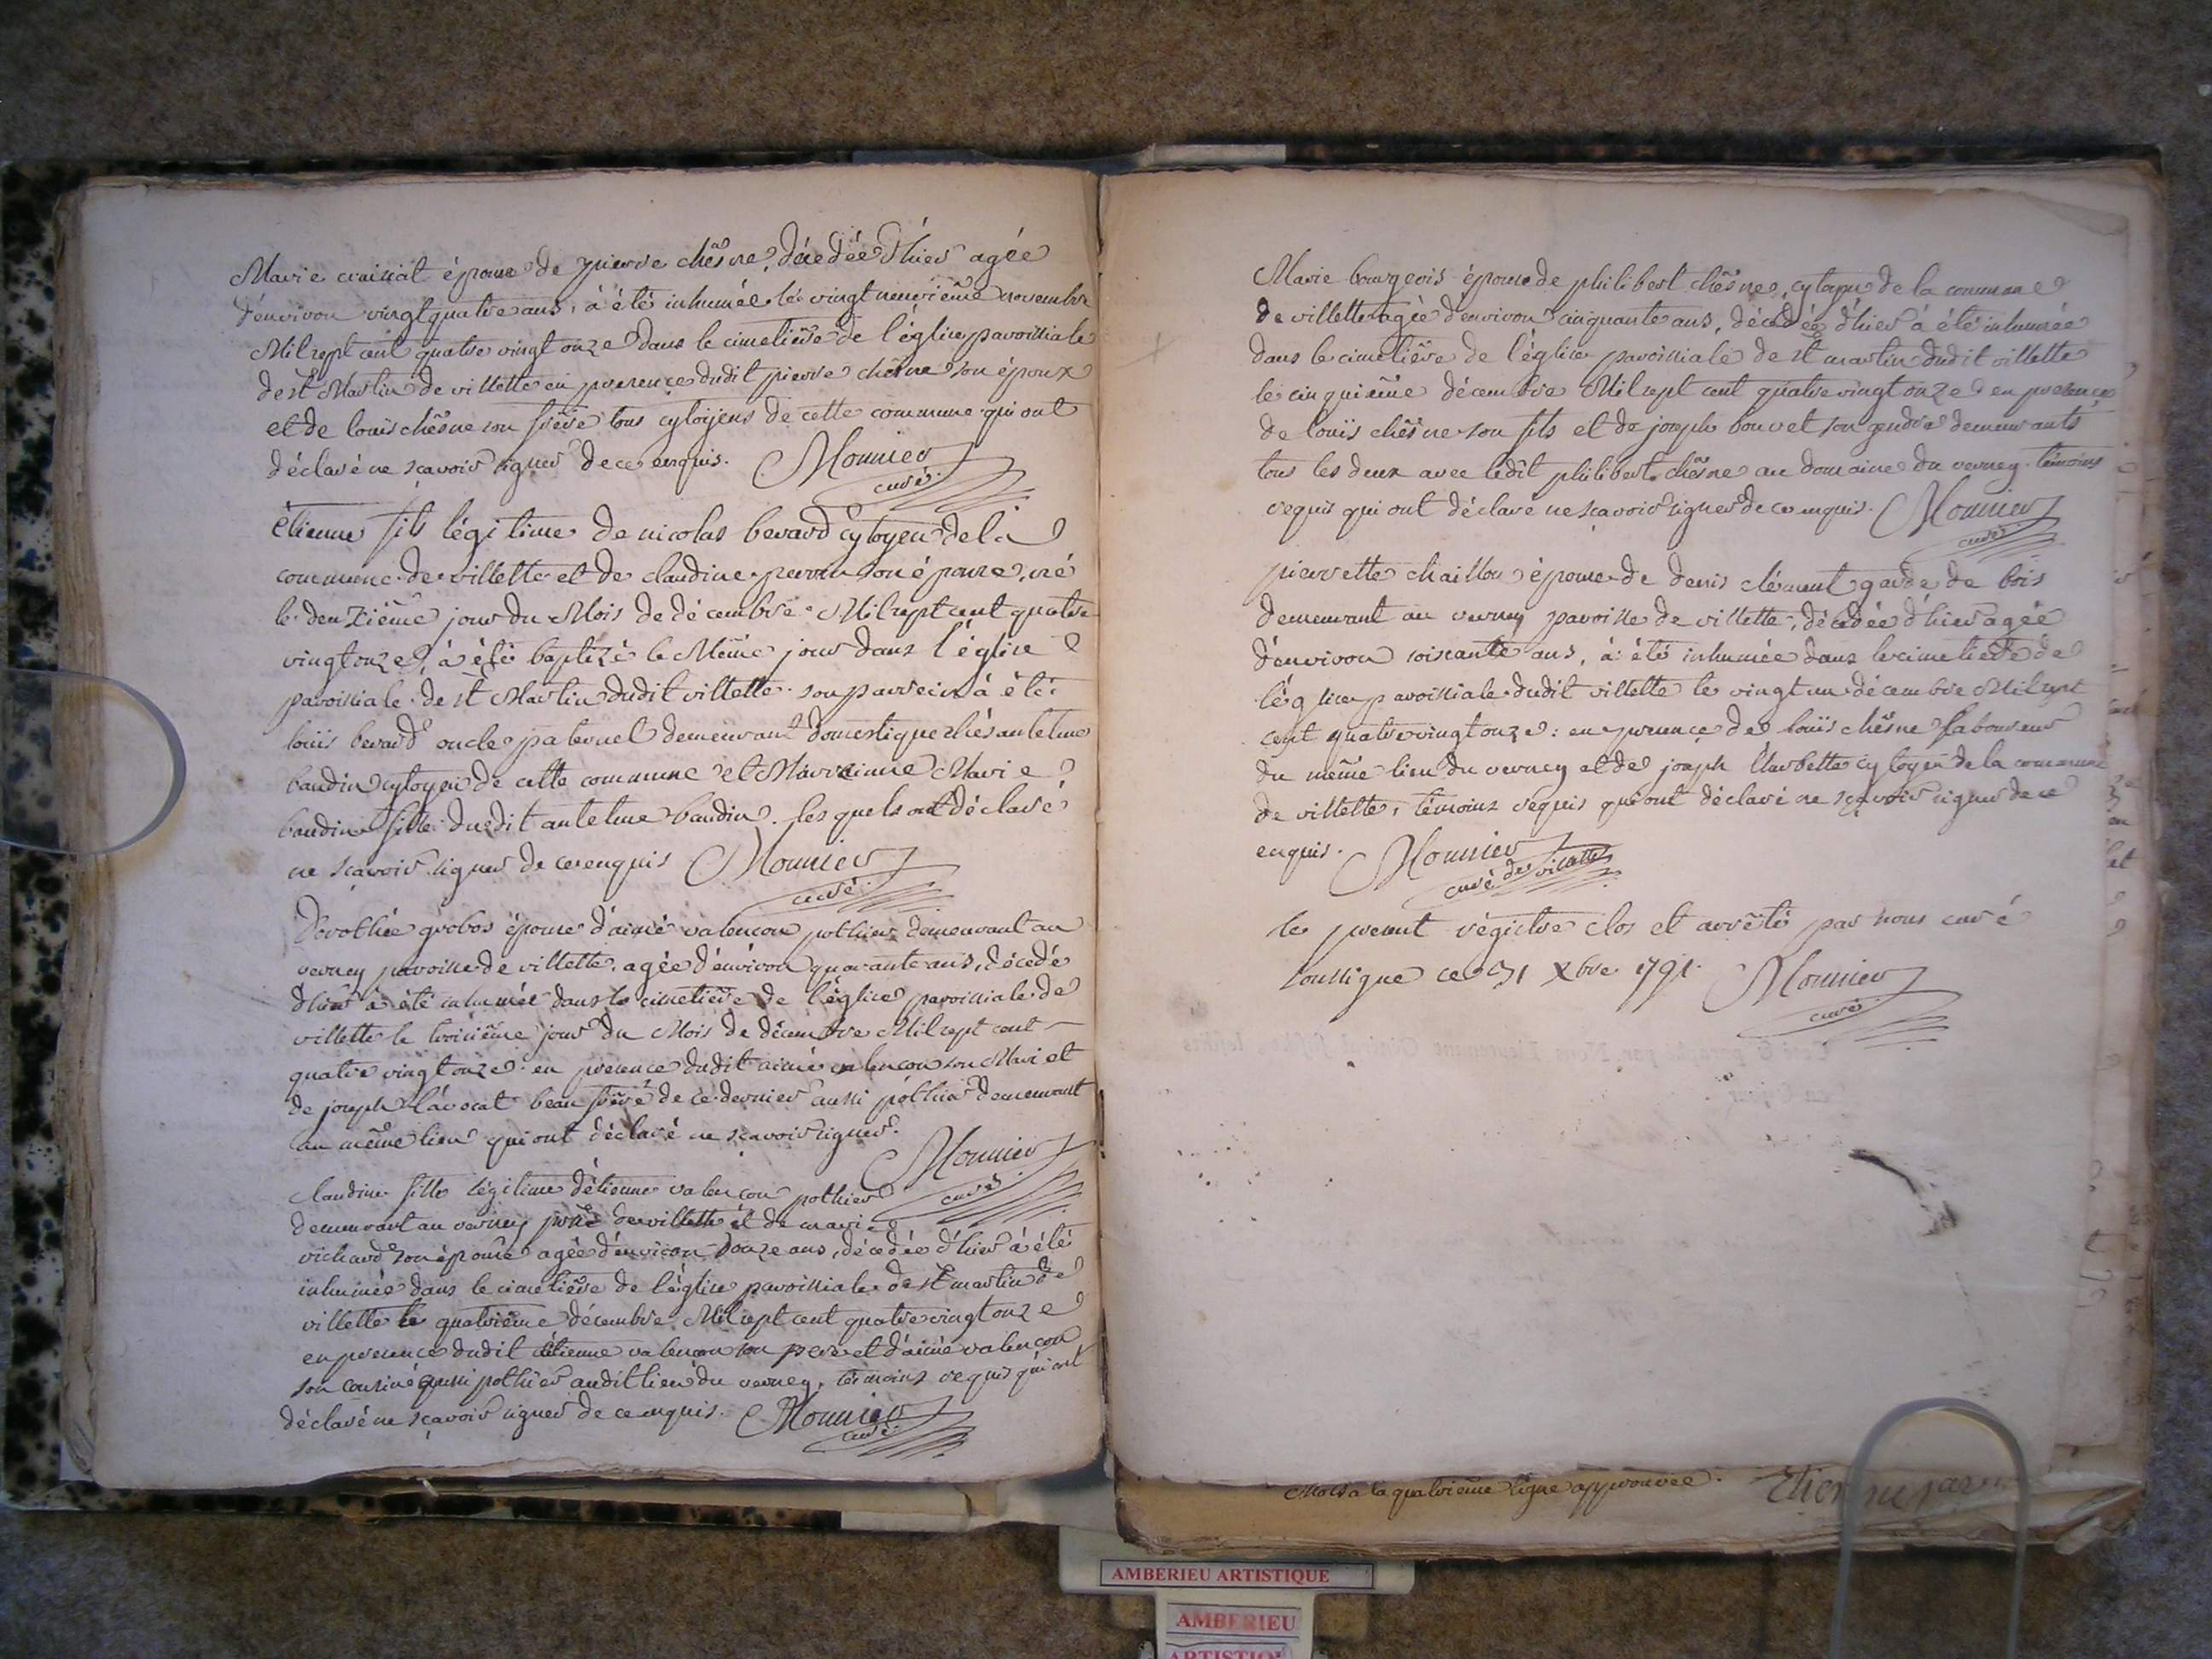 Marie crainat épouse de pierre chêsne, décedée d'hier agée
d'environ vingtquatre ans, à été inhumée le vingt neuvième novembre
Mil sept cent quatre vingt onze dans le cimetière de l'église paroissiale
de st Martin de villette en presence dudit pierre chêsne son époux
et de louis chêsne son frère tous cytoyens de cette commune qui ont
déclaré ne sçavoir signer de ce enquis. Monnier
curé.
étienne fils légitime de nicolas berard cytoyen de la
commune de villette et de claudine perrin son épouse, né
le deuxième jour du Mois de décembre Mil sept cent quatre
vingt onze, à été baptizé le Même jour dans l'église
paroissiale de st Martin dudit villette. son parrein à été
louis berard oncle paternel demeurant domestique chés antelme
baudin cytoyen de cette commune et Marreinne Marie
baudin fille dudit antelme baudin. les quels ont déclaré
ne sçavoir signer de ce enquis Monnier
curé.
Dorothée grobos épouse d'aimé valençon pothier demeurant au
verney paroisse de villette, agée d'environ quarante ans, décedé
d'hier à été inhumée dans le cimetière de l'église paroissiale de
villette le troisième jour du Mois de décembre Mil sept cent
quatre vingt onze. en presence dudit aimé valençon son Mari et
de joseph l'avocat beau frère de ce dernier aussi pothier demeurant
au même lieu qui ont déclaré ne sçavoir signer.
Monnier
curé
Claudine fille légitime d'étienne valençon pothier
demeurant au verney psse de villette et de marie
richard son épouse agée d'environ douze ans, décedée d'hier à été
inhumée dans le cimetière de l'église paroissiale de st martin de
villette le quatrième décembre Mil sept cent quatre vingt onze
en presence dudit étienne valençon son pere et d'aimé valençon
son cousin aussi pothier audit lieu du verney, témoins requis qui ont
déclaré ne sçavoir signer de ce enquis. Monnier
curé.
Marie bourgeois épouse de philibert chêsne, cytoyen de la commune
de villette agée d'environ cinquante ans, décedée d'hier à été inhumée
dans le cimetière de l'église paroissiale de st martin dudit villette
le cinquième décembre Mil sept cent quatre vingt onze en presence
de louis chêsne son fils et de joseph bouvet son gendre demeurants
tous les deux avec ledit philibert chêsne au domaine du verney. témoins
requis qui ont déclaré ne sçavoir signer de ce enquis. Monnier
curé
pierrette chaillou épouse de denis clément garde de bois
demeurant au verney paroisse de villette, décedée d'hier agée
d'environ soixante ans, à été inhumée dans le cimetière de
l'église paroissiale dudit villette le vingt un décembre Mil sept
cent quatre vingt onze: en presence de louis chêsne laboureur
du même lieu du verney et de joseph cytoyen de la commune
de villette, témoins requis qui ont déclaré ne sçavoir signer de ce
enquis. Monnier
curé de villette
le present régistre clos et arrêté par nous curé
soussigné ce 31 Xbre 1791. Monnier
curé
Mots a la quatrième ligne approuvée. Etienne
AMBERIEU ARTISTIQUE
AMBERIEU
ARTISTIQUE